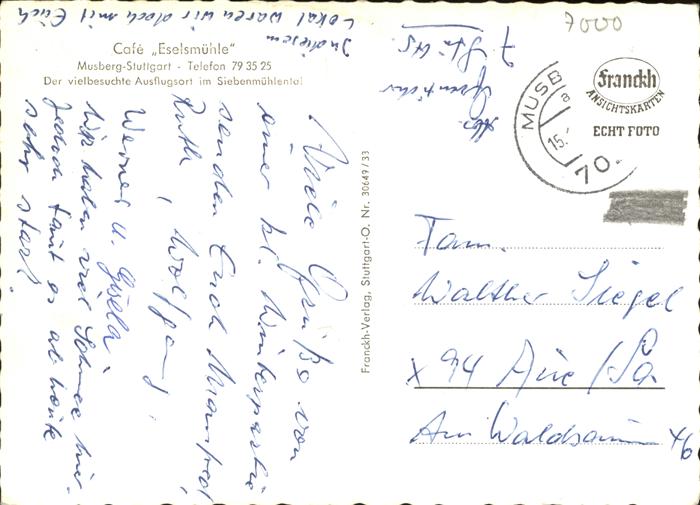 In diesem
Lokal waren wir doch mit Euch
Café „Eselsmühle“
Musberg-Stuttgart - Telefon 79 35 25
Der vielbesuchte Ausflugsort im Siebenmühlental
Viele Grüße von
einer kl. Winterpartie
senden Euch Manfred,
Ruth, Wolfgang,
Werner u. Gisela.
Wir haben viel Schnee hier.
Jedoch taut es ab heute
sehr stark.
Franckh-Verlag, Stuttgart-O. Nr. 30649/33
Abs.
7
7000
MUSB
8
15.
70.
Franckh
ANSICHTSKARTEN
ECHT FOTO
Fam.
Walther Siegel
x 94 Aue / Sa.
Am Waldsaum 46